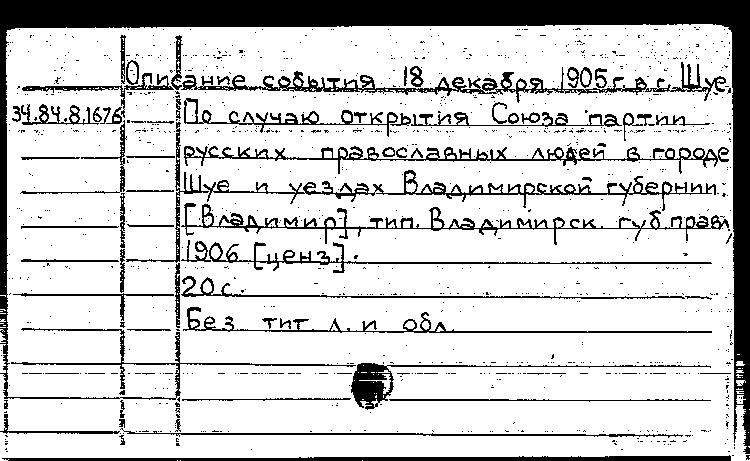 Описание события 18 декабря 1905 г. в г. Шуе.
34.84.8.1676 По случаю открытия Союза партии
русских православных людей в городе
Шуе и уездах Владимирской губернии.
[Владимир], тип. Владимирск. губ. правл,
1906 [ценз.].
20 с.
Без тит. л. и обл.